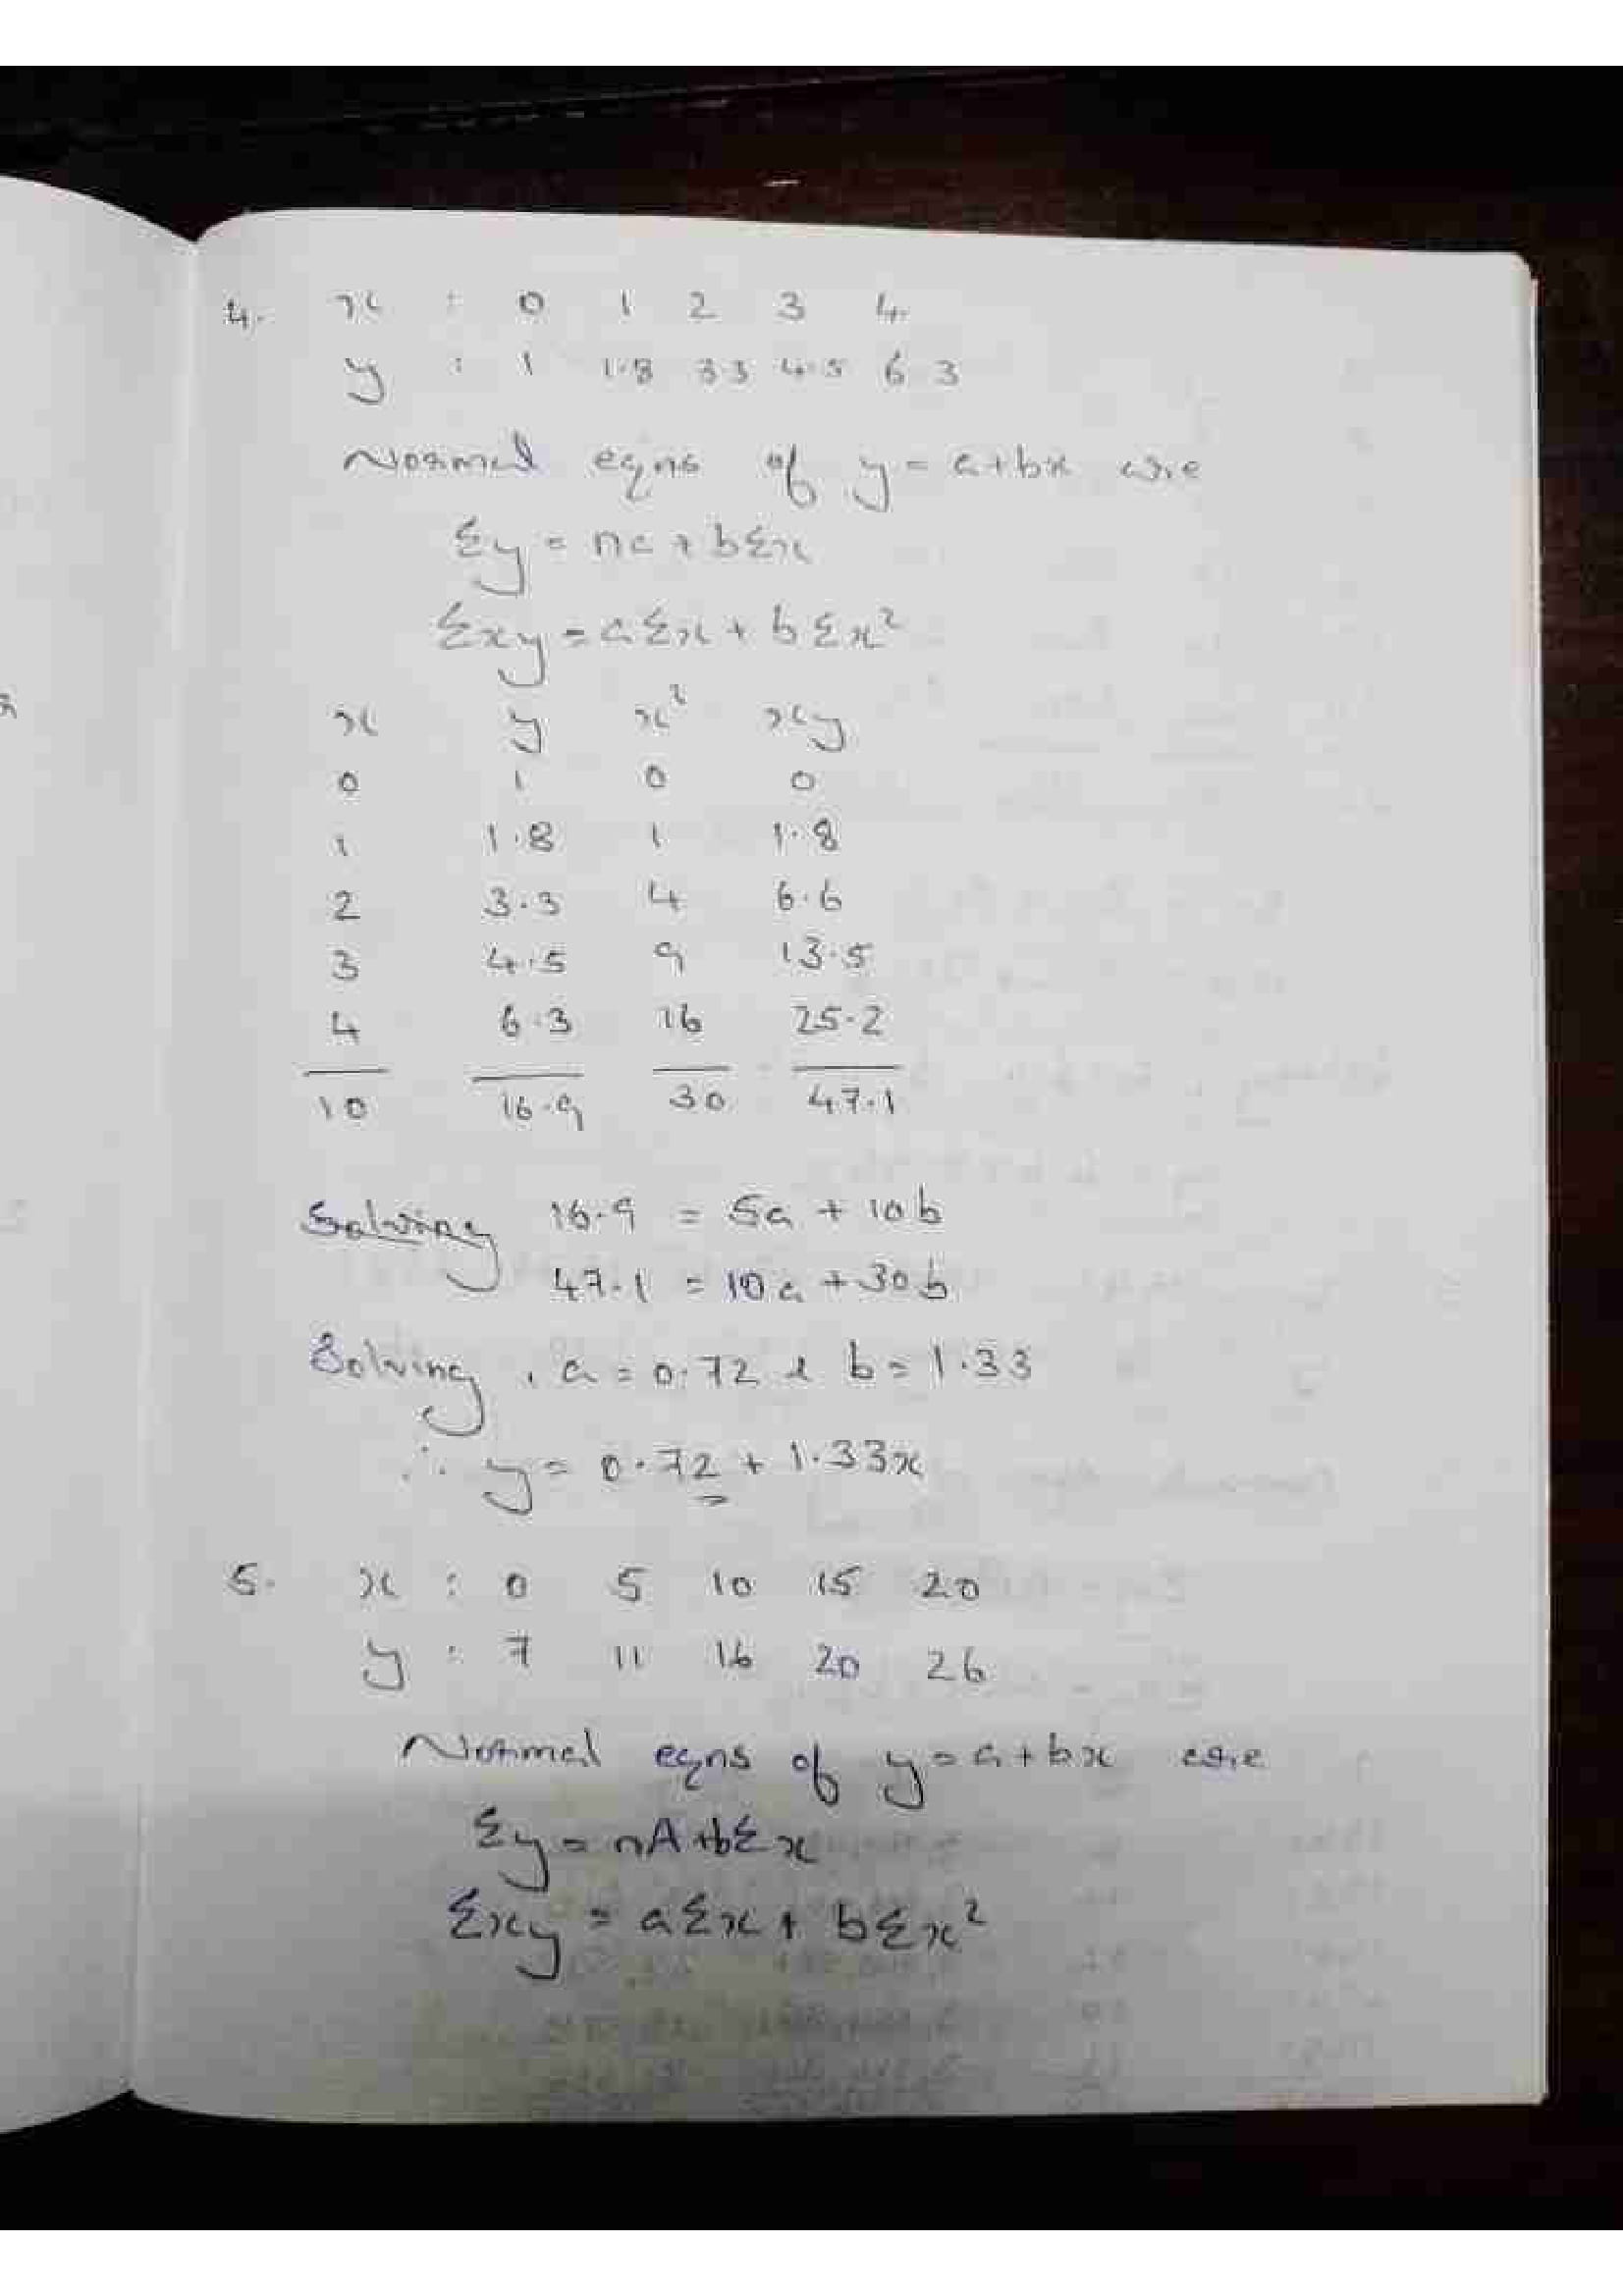 4. x : 0 1 2 3 4
y : 1 1.8 3.3 4.5 6.3
Normal eqns of y = a+bx are
Σy = na + bΣx
Σxy = aΣx + bΣx²
x y x² xy
0 1 0 0
1 1.8 1 1.8
2 3.3 4 6.6
3 4.5 9 13.5
4 6.3 16 25.2
10 16.9 30 47.1
Solving 16.9 = 5a + 10b
47.1 = 10a + 30b
Solving, a = 0.72 & b = 1.33
∴ y = 0.72 + 1.33x
5. x : 0 5 10 15 20
y : 7 11 16 20 26
Normal eqns of y = a+bx are
Σy = nA + bΣx
Σxy = aΣx + bΣx²